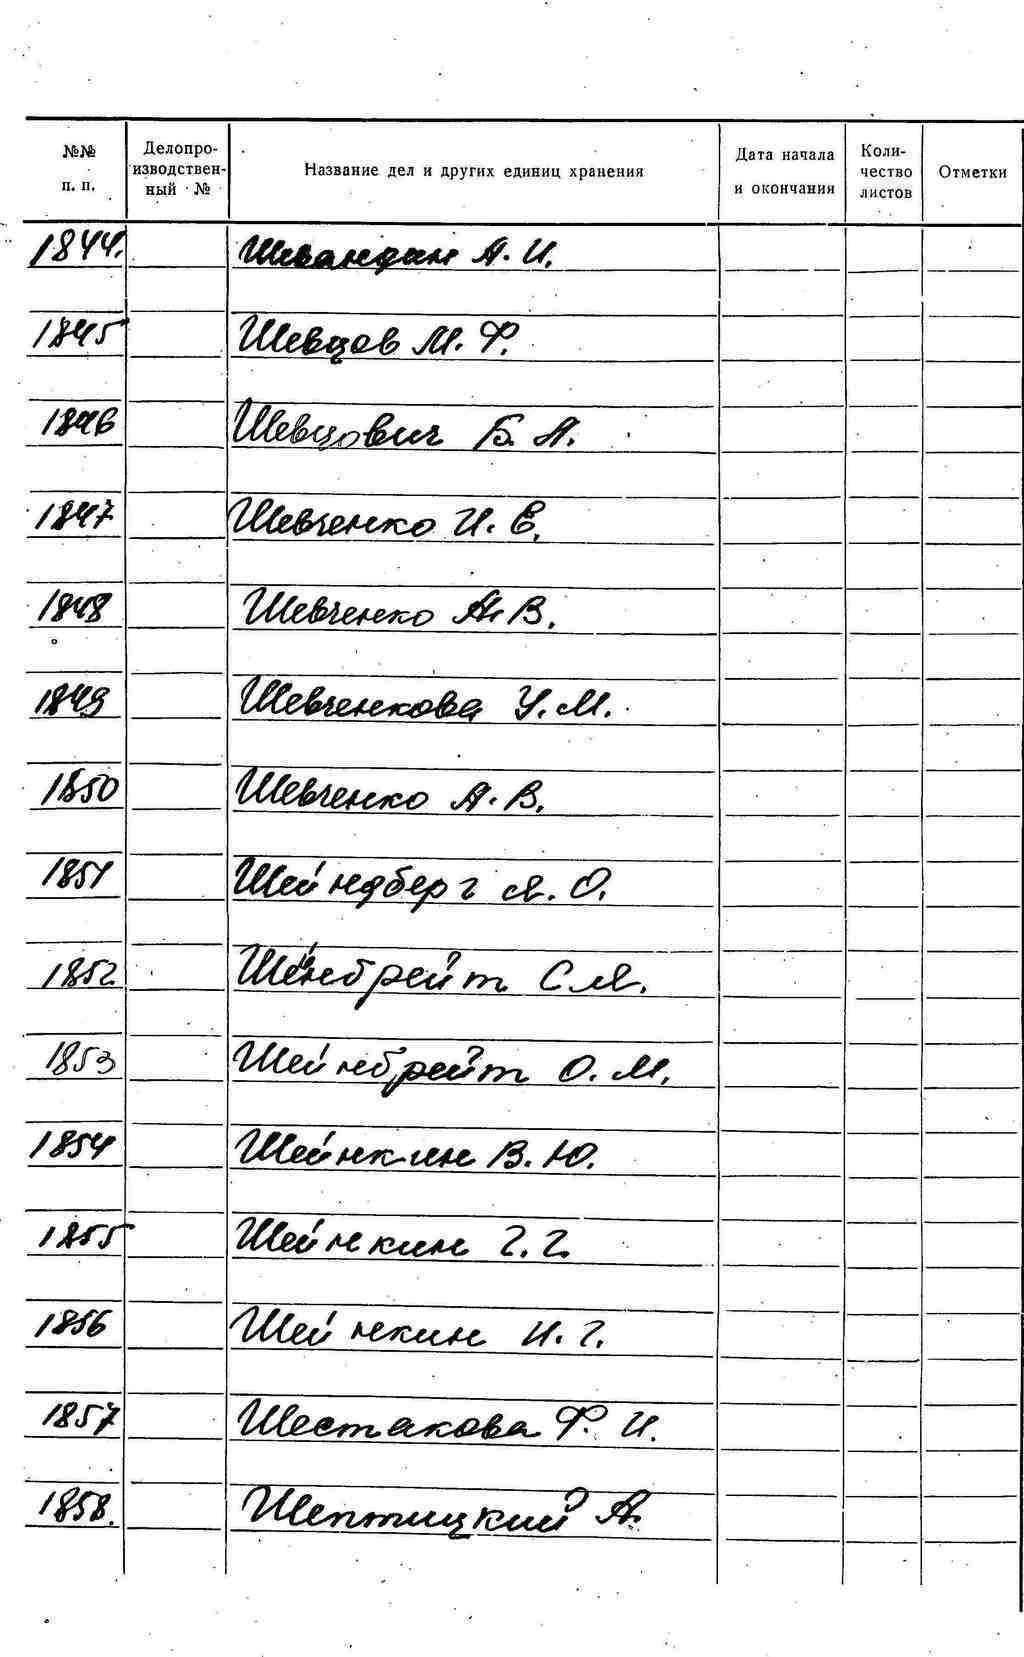 №№ п. п. Делопроизводственный № Название дел и других единиц хранения Дата начала и окончания Количество листов Отметки
1844. Шевандин А. И.
1845 Шевцов М. Ф.
1846 Шевцович Б. А.
1847 Шевченко И. Е.
1848 Шевченко А. В.
1849 Шевченкова У. М.
1850 Шевченко А. В.
1851 Шейндберг Я. О.
1852 Шейнбрейт С. Я.
1853 Шейнбрейт О. М.
1854 Шейнкин В. Ю.
1855 Шейнкин Г. Г.
1856 Шейнкин И. Г.
1857 Шестакова Ф. И.
1858. Шептицкий А.